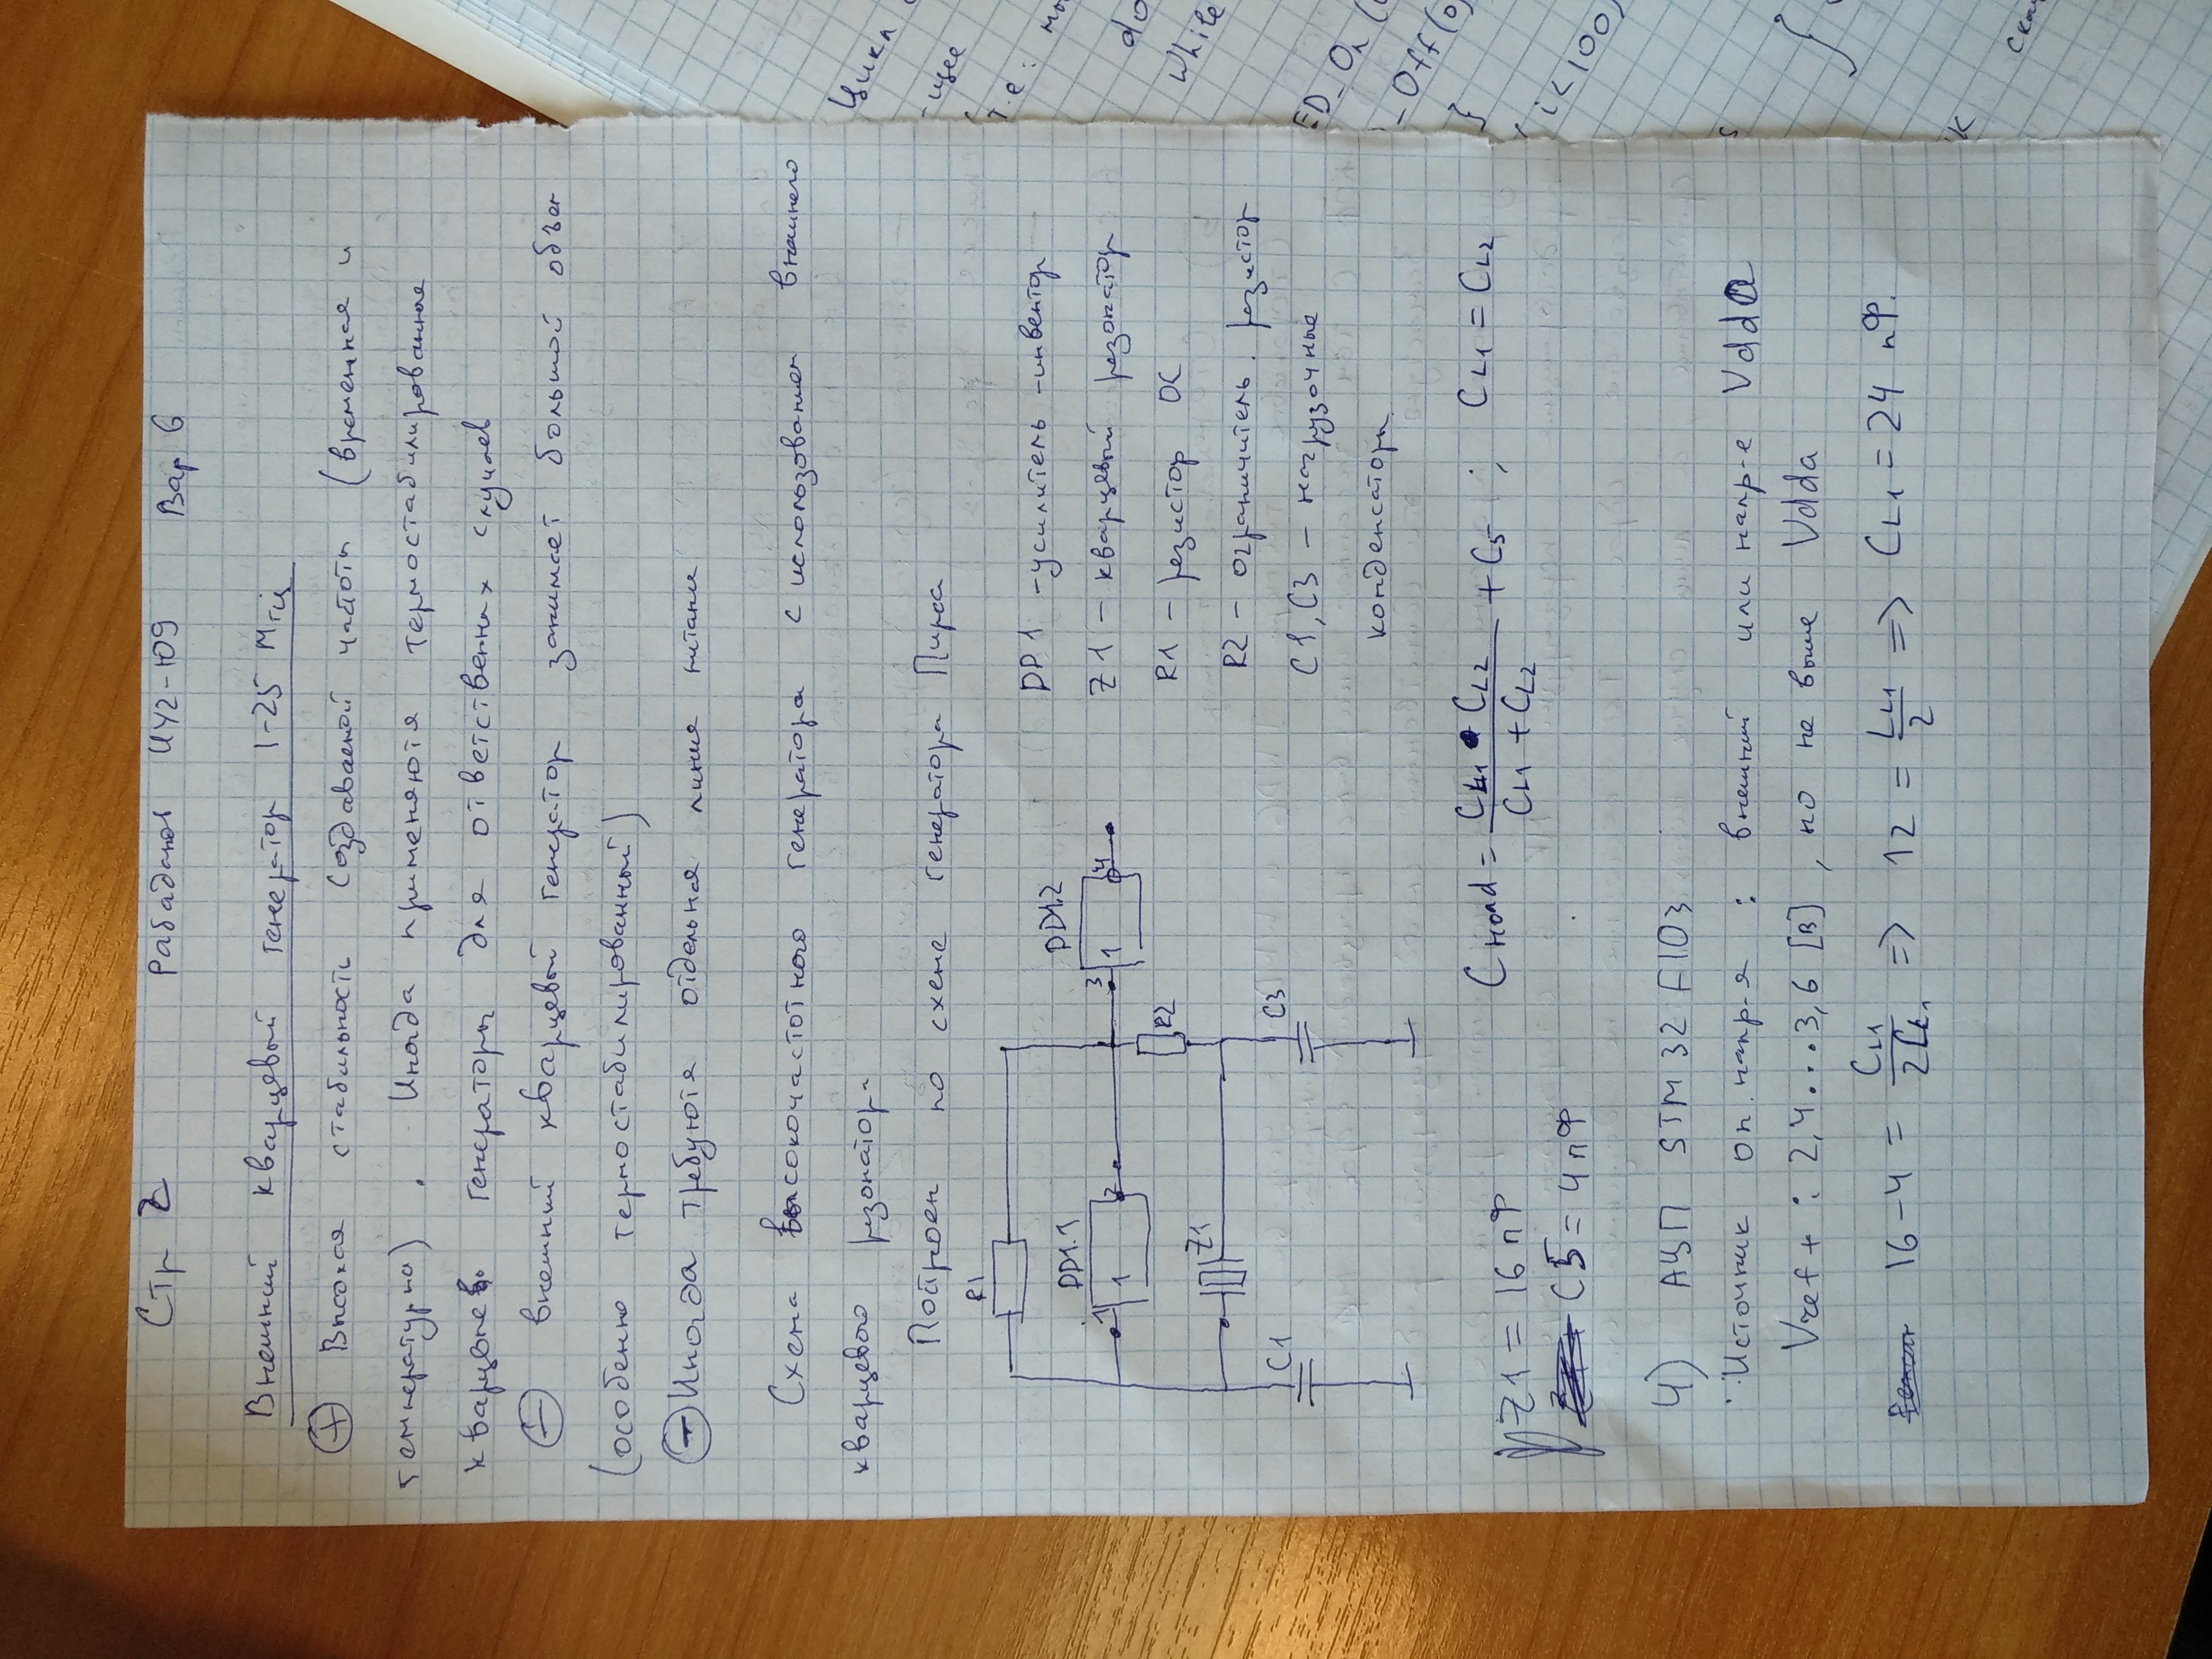 Стр 2 Рабаданов ИУ2-109 Вар 6
Внешний кварцевый генератор 1-25 МГц
+ Высокая стабильность создаваемой частоты (временная и
температурна). Иногда применяются термостабилированные
кварцевые генераторы для ответственных случаев
- внешний кварцевый генератор занимает большой объем
(особенно термостабилированный)
- Иногда требуются отдельная линия питани
Схема высокочастотного генератора с использованием внешнего
кварцевого резонатор.
Построен по схеме генератора Пирса
R1
DD1.1
1 1 2
DD1.2
3 1 4
R2
Z1
C1
C3
DD1 - усилитель-инвентор
Z1 - кварцевый резонатор
R1 - резистор ОС
R2 - ограничитель. резистор
C1, C3 - нагрузочные
конденсаторы
Z1 = 16 пФ
CS = 4 пФ
CL1 • CL2
CL1 + CL2
+ CS ; CL1 = CL2
4) АЦП STM32F103
Источник оп. напр-я : внешний или напр-е Vdda
Vref+ : 2,4...3,6 [В], но не выше Vdda
16-4 = CL1 / 2CL1 => 12 = CL1 / 2 => CL1 = 24 пФ.
Цикл
-щее
т.е:
do
While
i<100)